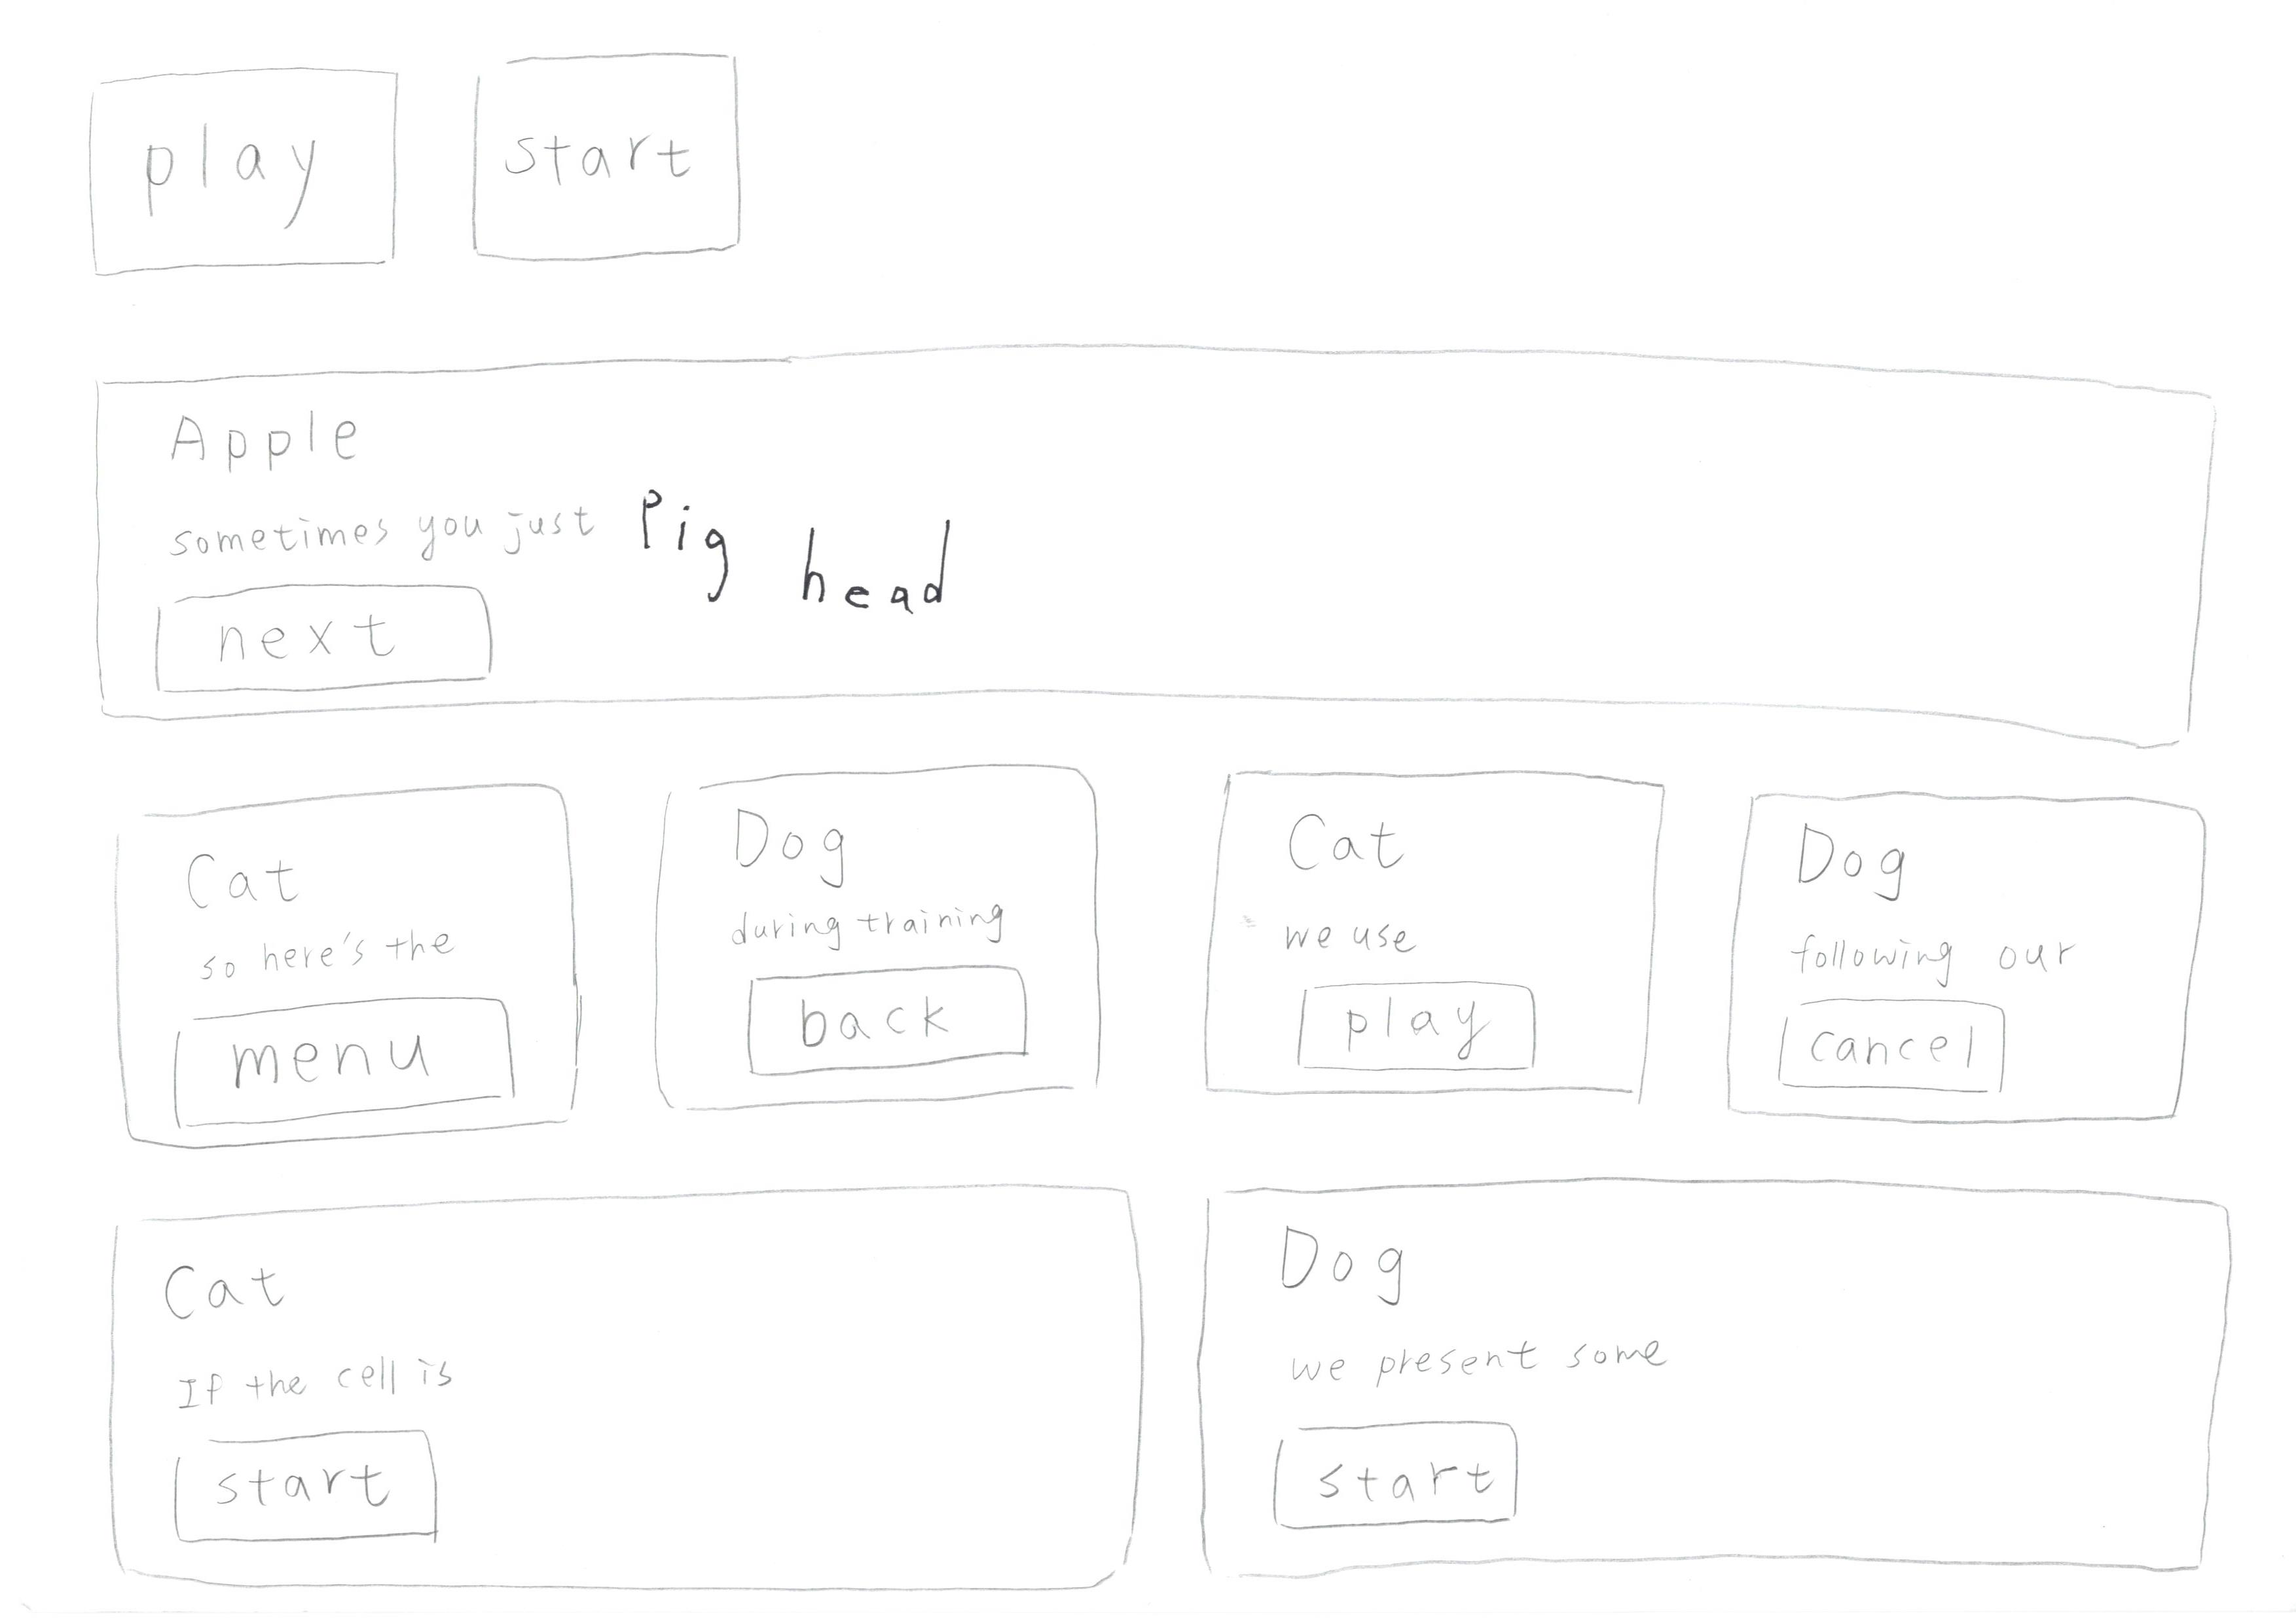 play start
Apple
sometimes you just Pig head
next
Cat
so here's the
menu
Dog
during training
back
Cat
we use
play
Dog
following our
cancel
Cat
If the cell is
start
Dog
we present some
start